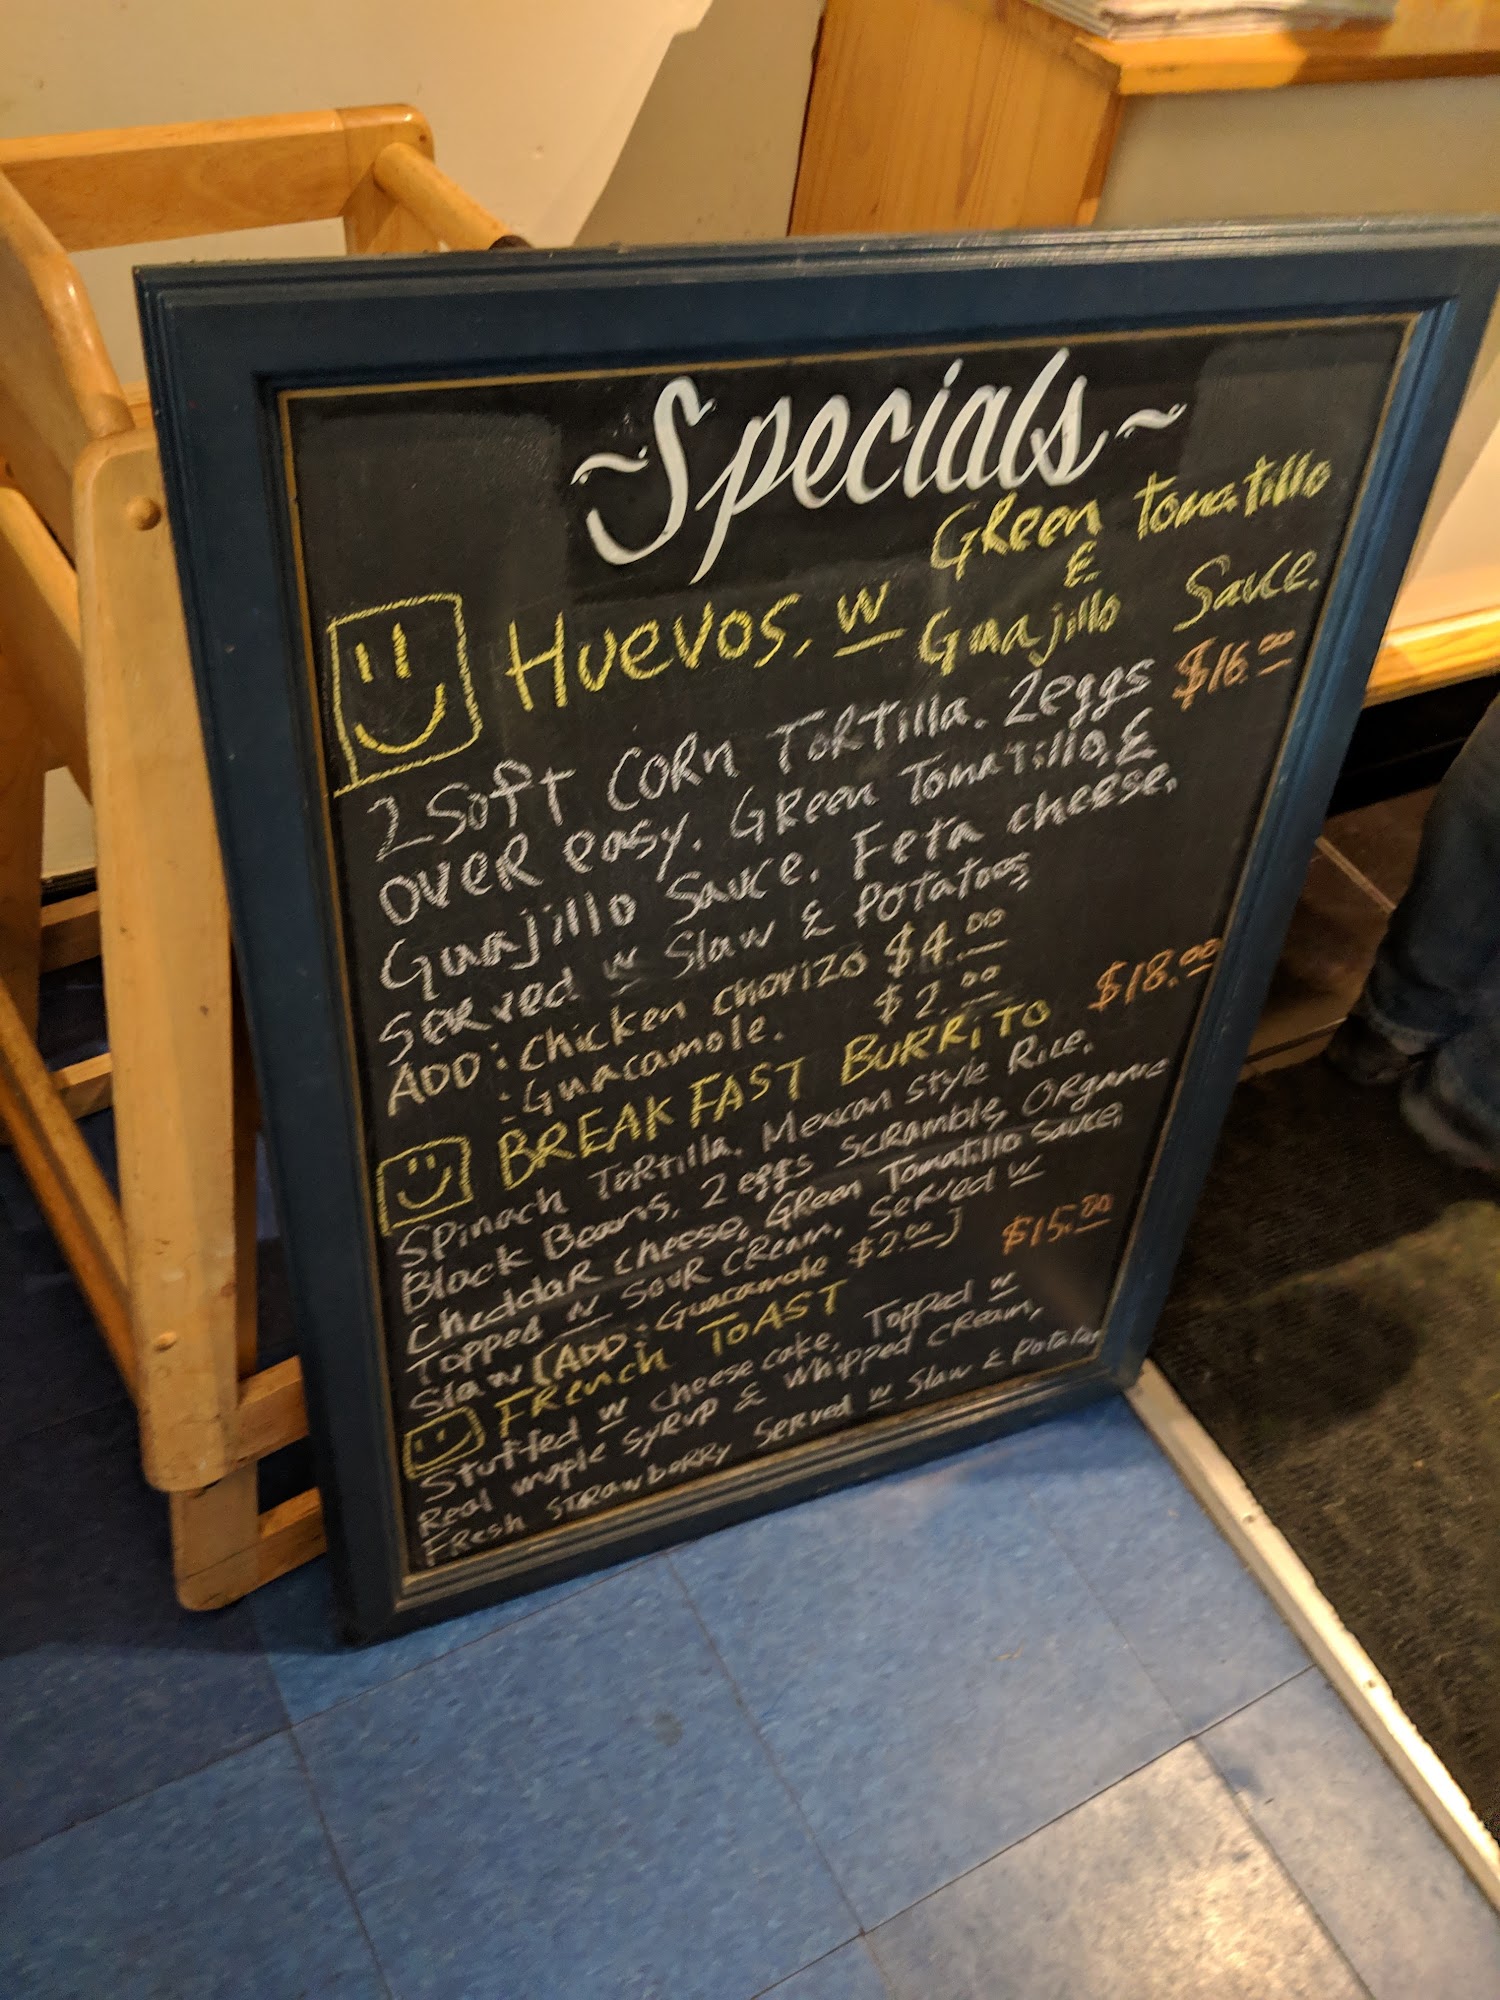 ~Specials~
Green tomatillo
Huevos, w & Guajillo Sauce.
2 Soft Corn Tortilla. 2 eggs $16.00
over easy. Green Tomatillo, &
Guajillo Sauce. Feta cheese.
Served w Slaw & Potatoes
ADD: chicken chorizo $4.00
: Guacamole. $2.00
BREAKFAST BURRITO $18.00
Spinach Tortilla. Mexican Style Rice.
Black Beans. 2 eggs Scramble, Organic
Cheddar cheese, Green Tomatillo Sauce.
Topped w Sour Cream. Served w
Slaw [ADD: Guacamole $2.00]
French TOAST $15.00
Stuffed w cheese cake. Topped w
Real maple syrup & Whipped cream,
Fresh strawberry Served w Slaw & Potatoes